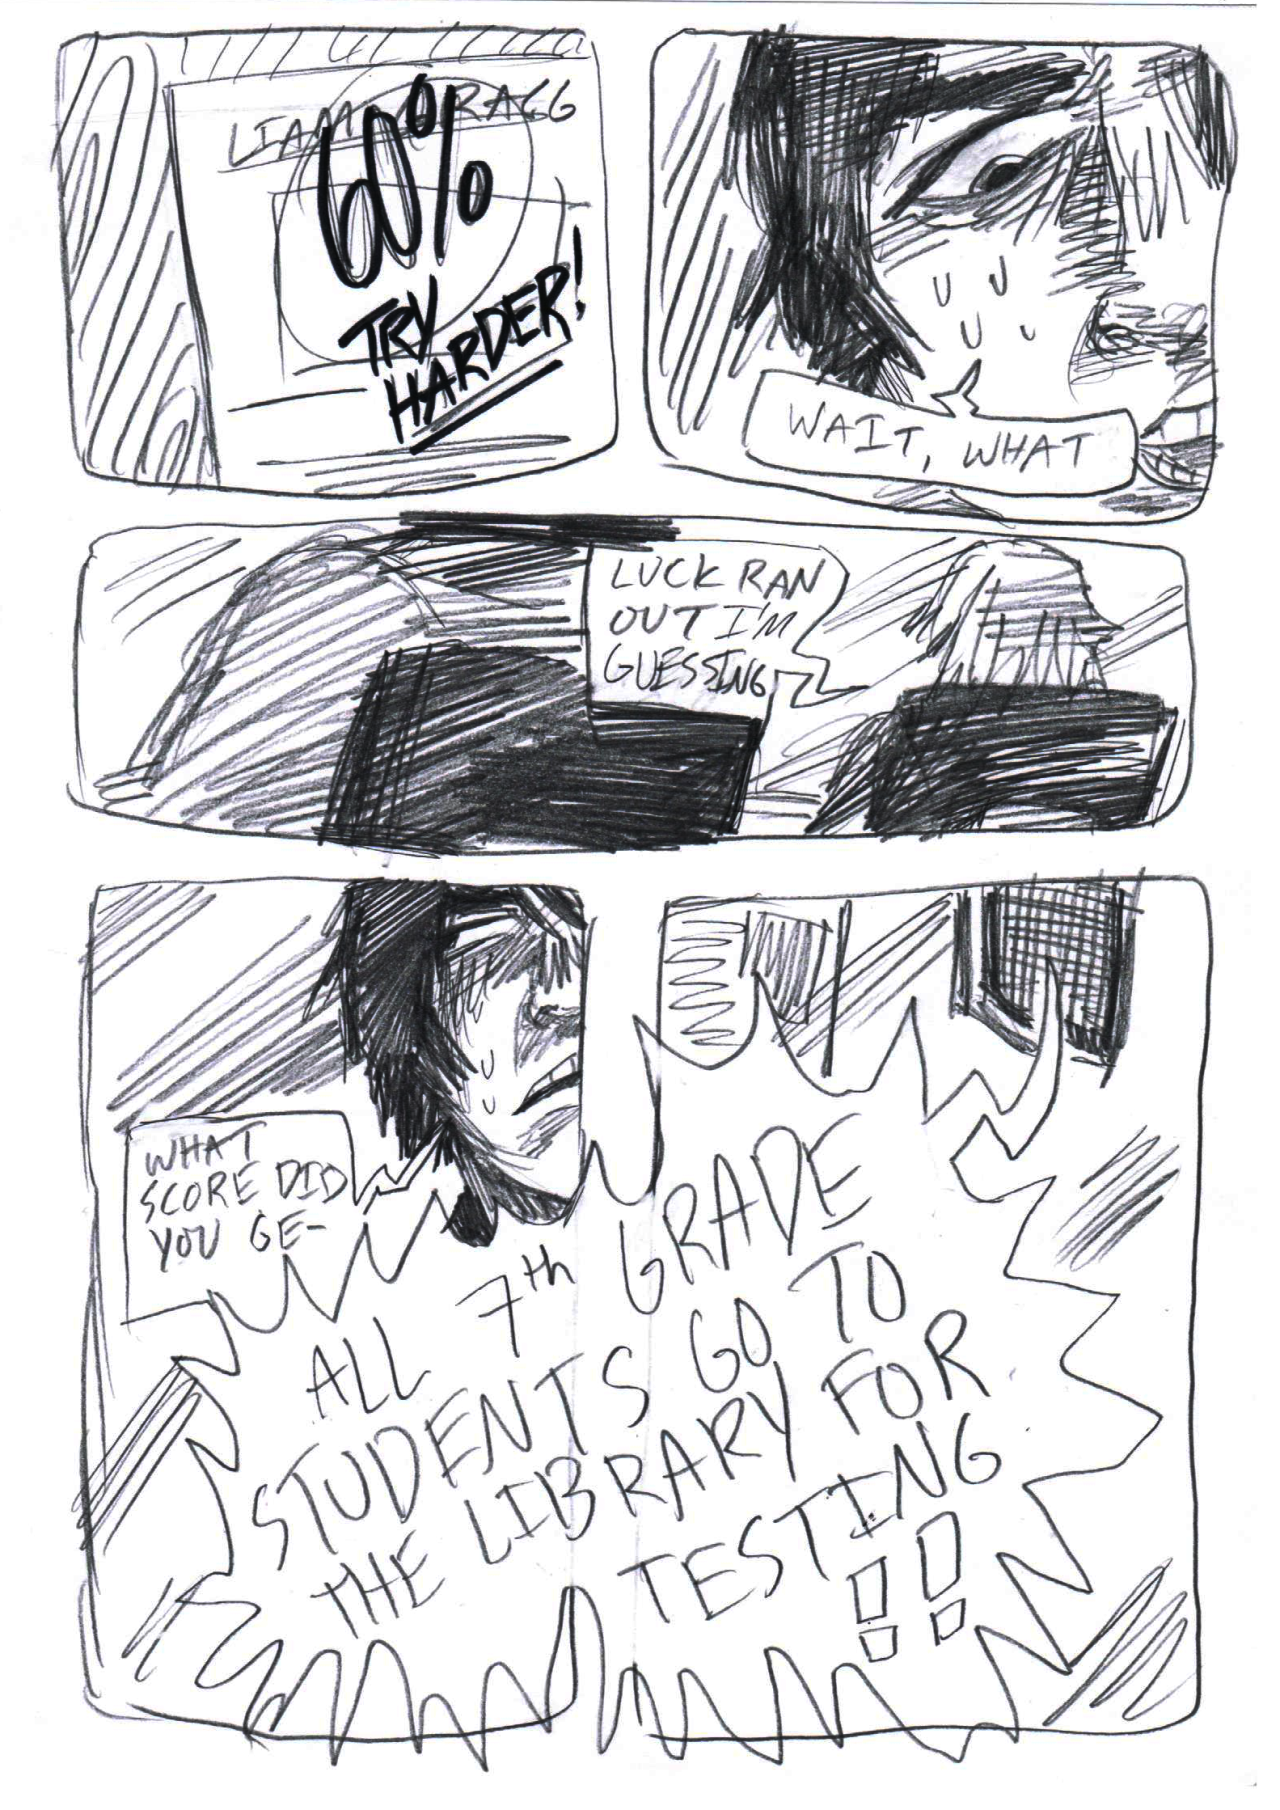 LIAM
60%
TRY
HARDER!
WAIT, WHAT
LUCK RAN
OUT I'M
GUESSING
WHAT
SCORE DID
YOU GE-
ALL 7th GRADE
STUDENTS GO TO
THE LIBRARY FOR
TESTING
!!